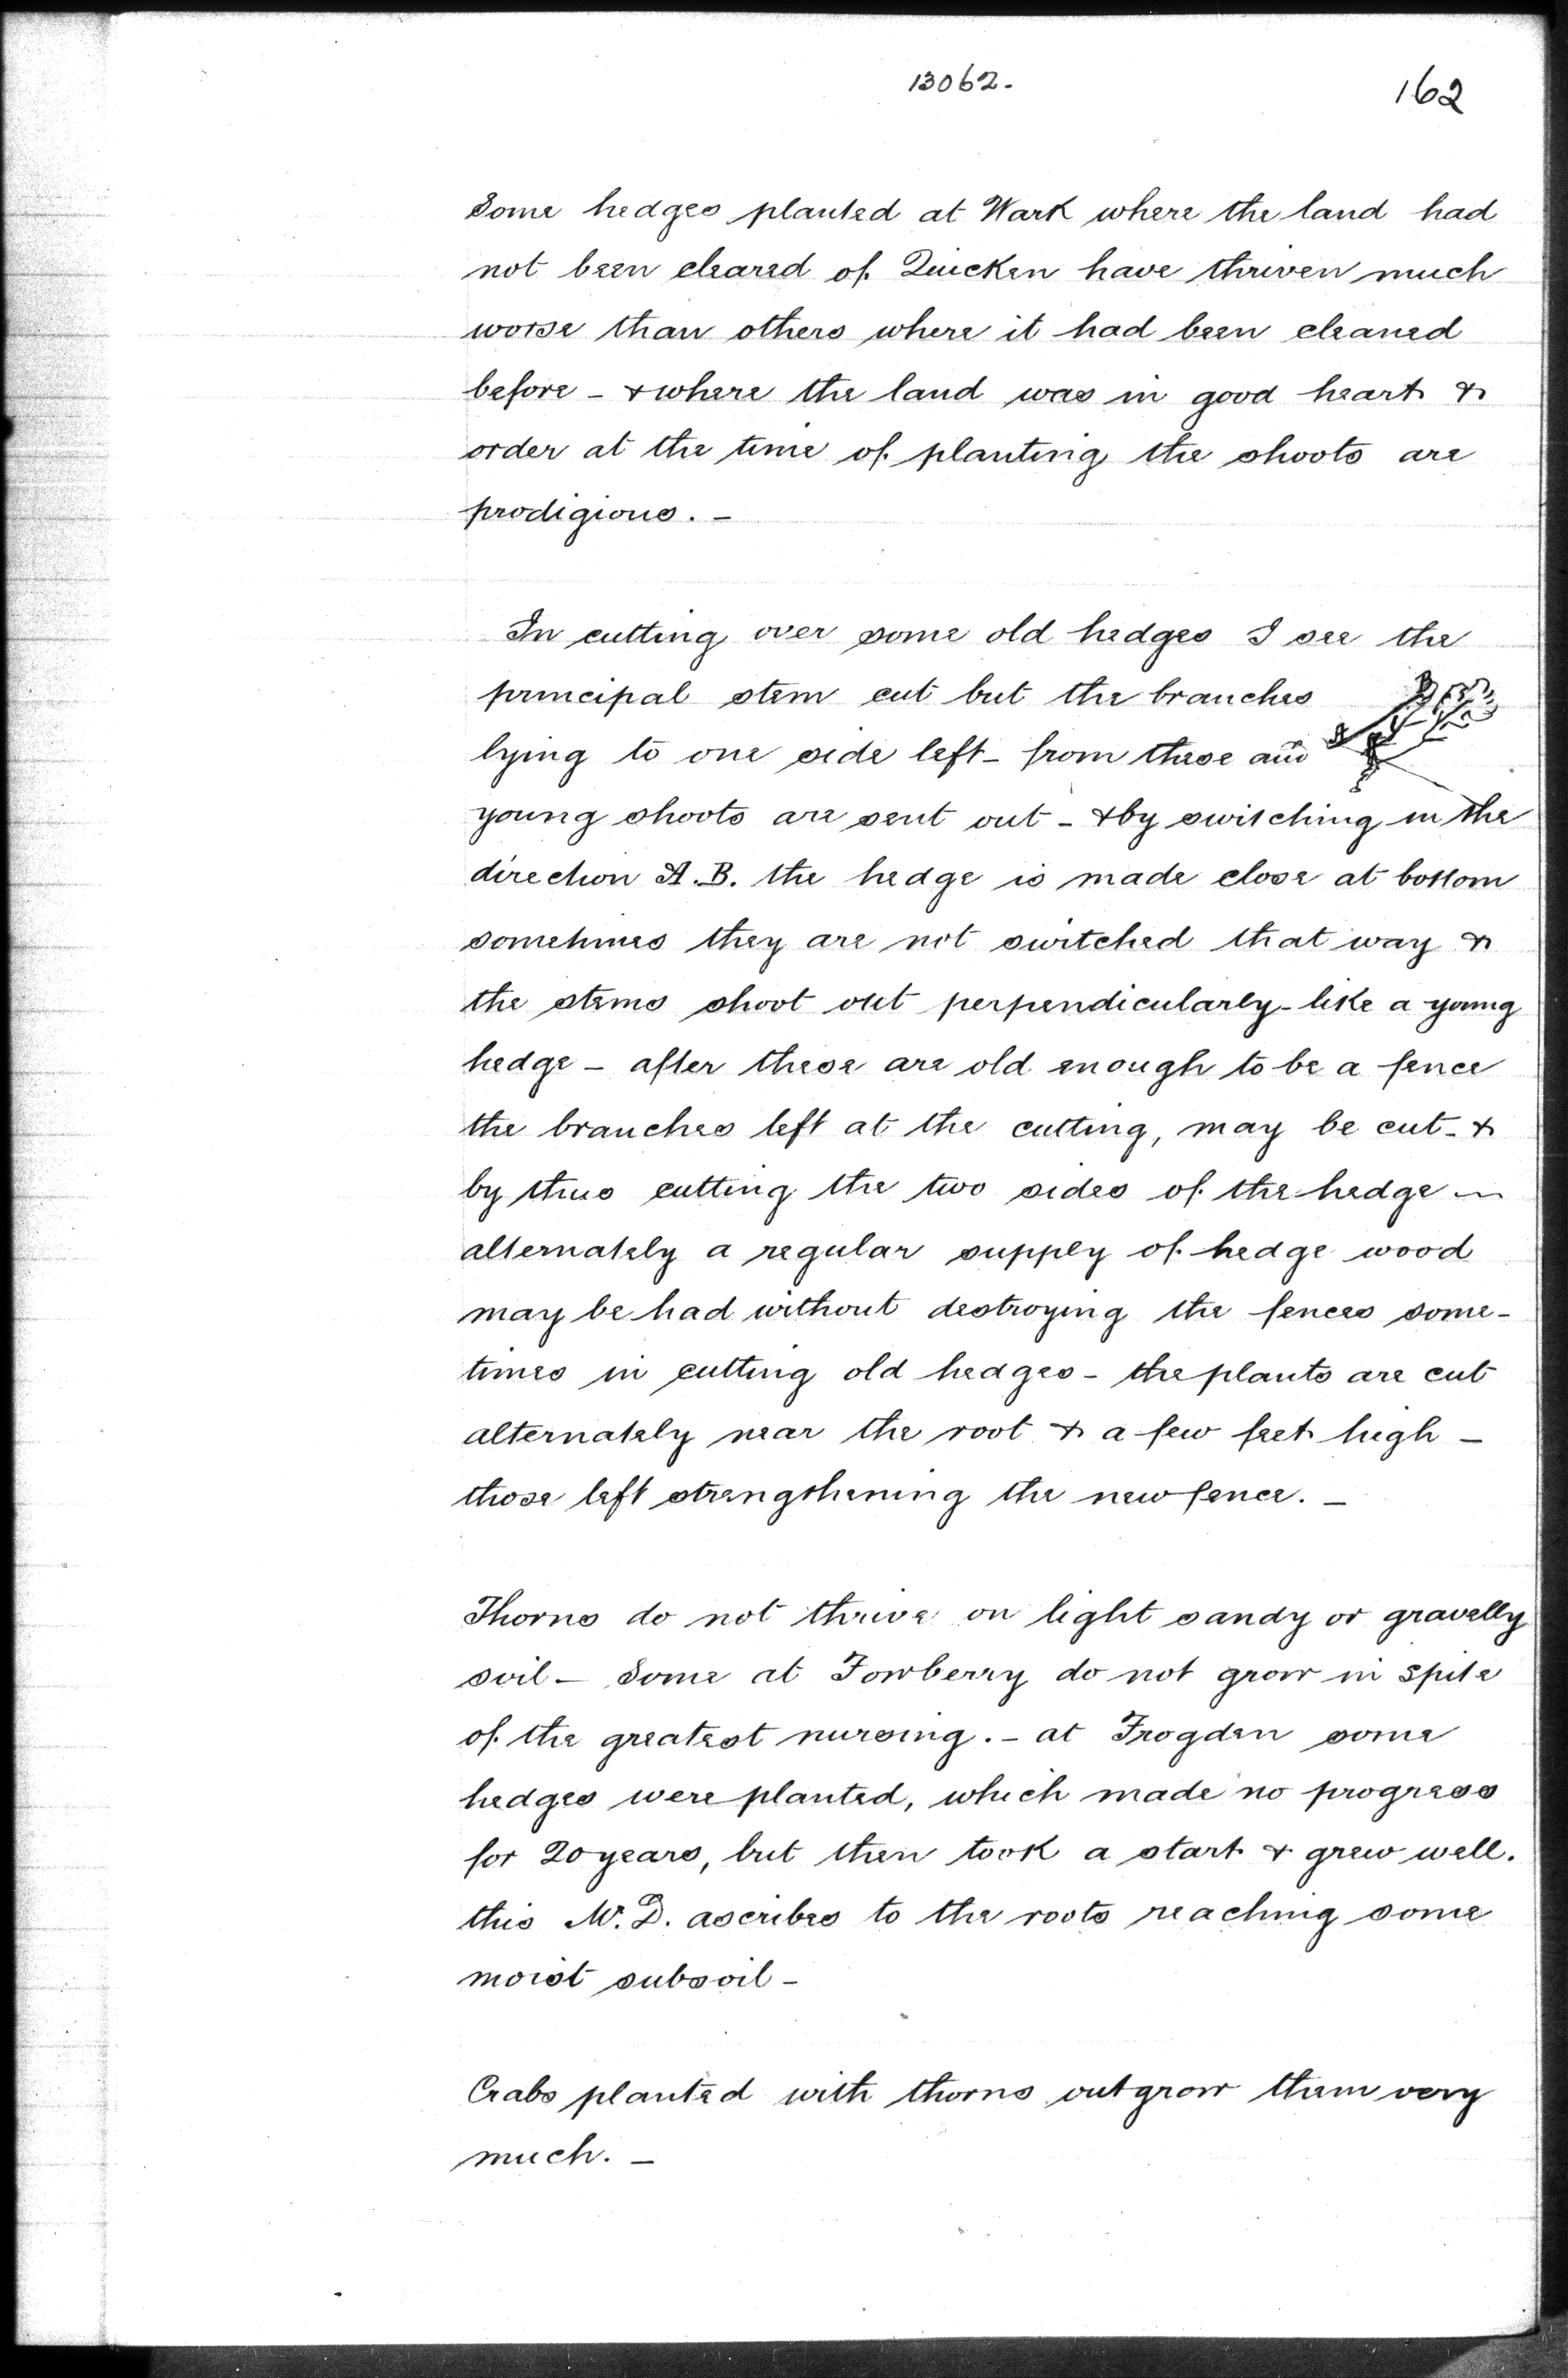 13062.
162
Some hedges planted at Wark where the land had
not been cleared of Quicken have thriven much
worse than others where it had been cleaned
before - & where the land was in good heart &
order at the time of planting the shoots are
prodigious. -
In cutting over some old hedges I see the
principal stem cut but the branches
lying to one side left - from these and
young shoots are sent out - & by switching in the
direction A.B. the hedge is made close at bottom
sometimes they are not switched that way &
the stems shoot out perpendicularly - like a young
hedge - after these are old enough to be a fence
the branches left at the cutting, may be cut - &
by thus cutting the two sides of the hedge
alternately a regular supply of hedge wood
may be had without destroying the fences some-
times in cutting old hedges - the plants are cut
alternately near the root & a few feet high -
those left strengthening the new fence. -
Thorns do not thrive on light sandy or gravelly
soil - Some at Fowberry do not grow in spite
of the greatest nursing. - at Frogden some
hedges were planted, which made no progress
for 20 years, but then took a start & grew well.
this Mr. D. ascribes to the roots reaching some
moist subsoil -
Crabs planted with thorns outgrow them very
much. -